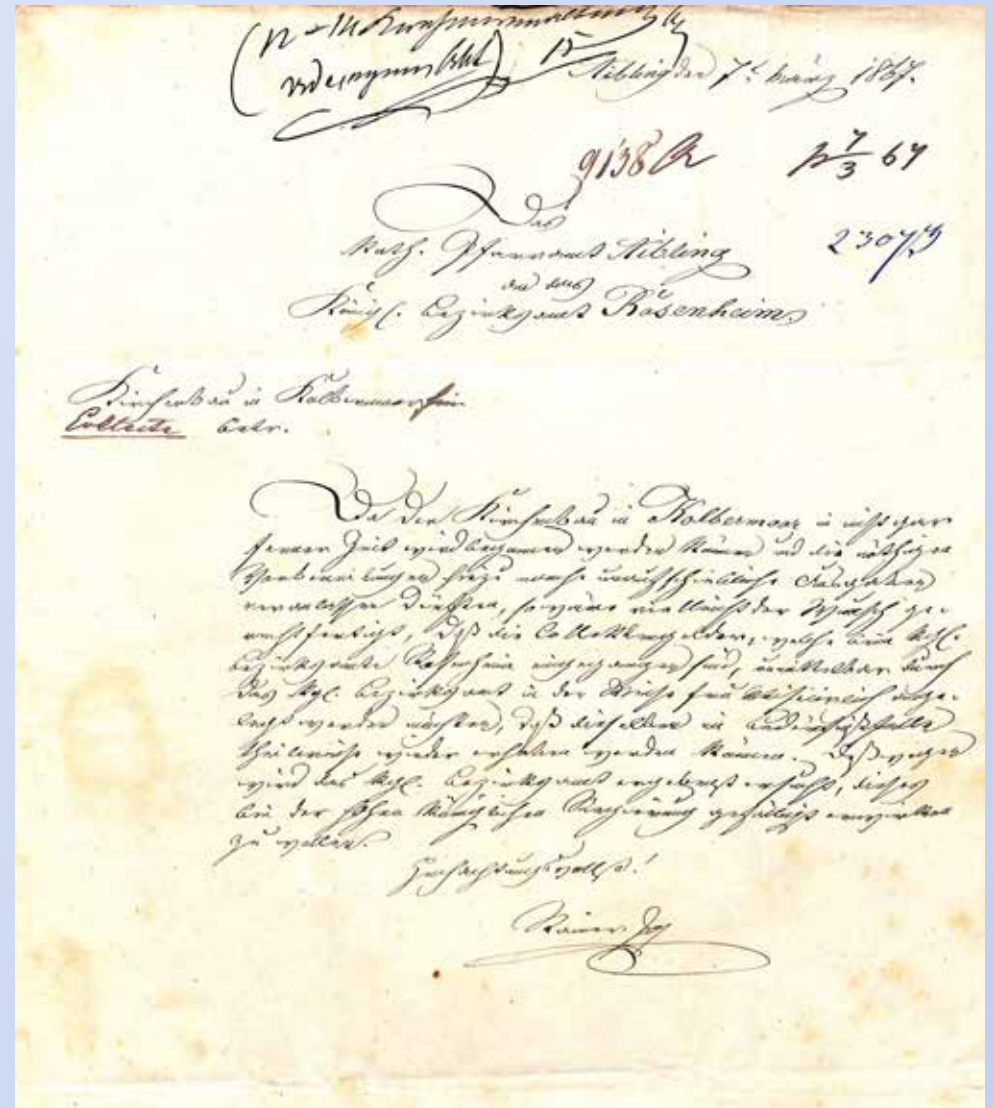 Aibling den 7t. März 1867.
9138
7/3 67
2307
Das
Kath. Pfarramt Aibling
an das
Königl. Bezirksamt Rosenheim
Kirchenbau in Kolbermoor
Collecte betr.
Da der Kirchenbau in Kolbermoor in nicht gar
ferner Zeit wird begonnen werden können und die nöthigen
Vorbereitungen hiezu manche unaufschiebliche Ausgaben
veranlassen dürften, so wäre vielleicht der Wunsch ge-
rechtfertigt, daß die Collektengelder, welche beim kgl.
Bezirksamte Rosenheim eingegangen sind, unmittelbar durch
das kgl. Bezirksamt in der Weise verzinslich ange-
legt werden möchten, daß dieselben im Bedürfnißfalle
theilweise wieder erhoben werden können. Deßwegen
wird das kgl. Bezirksamt ergebenst ersucht, dieses
bei der hohen königlichen Regierung gefälligst erwirken
zu wollen.
Hochachtungsvollst!